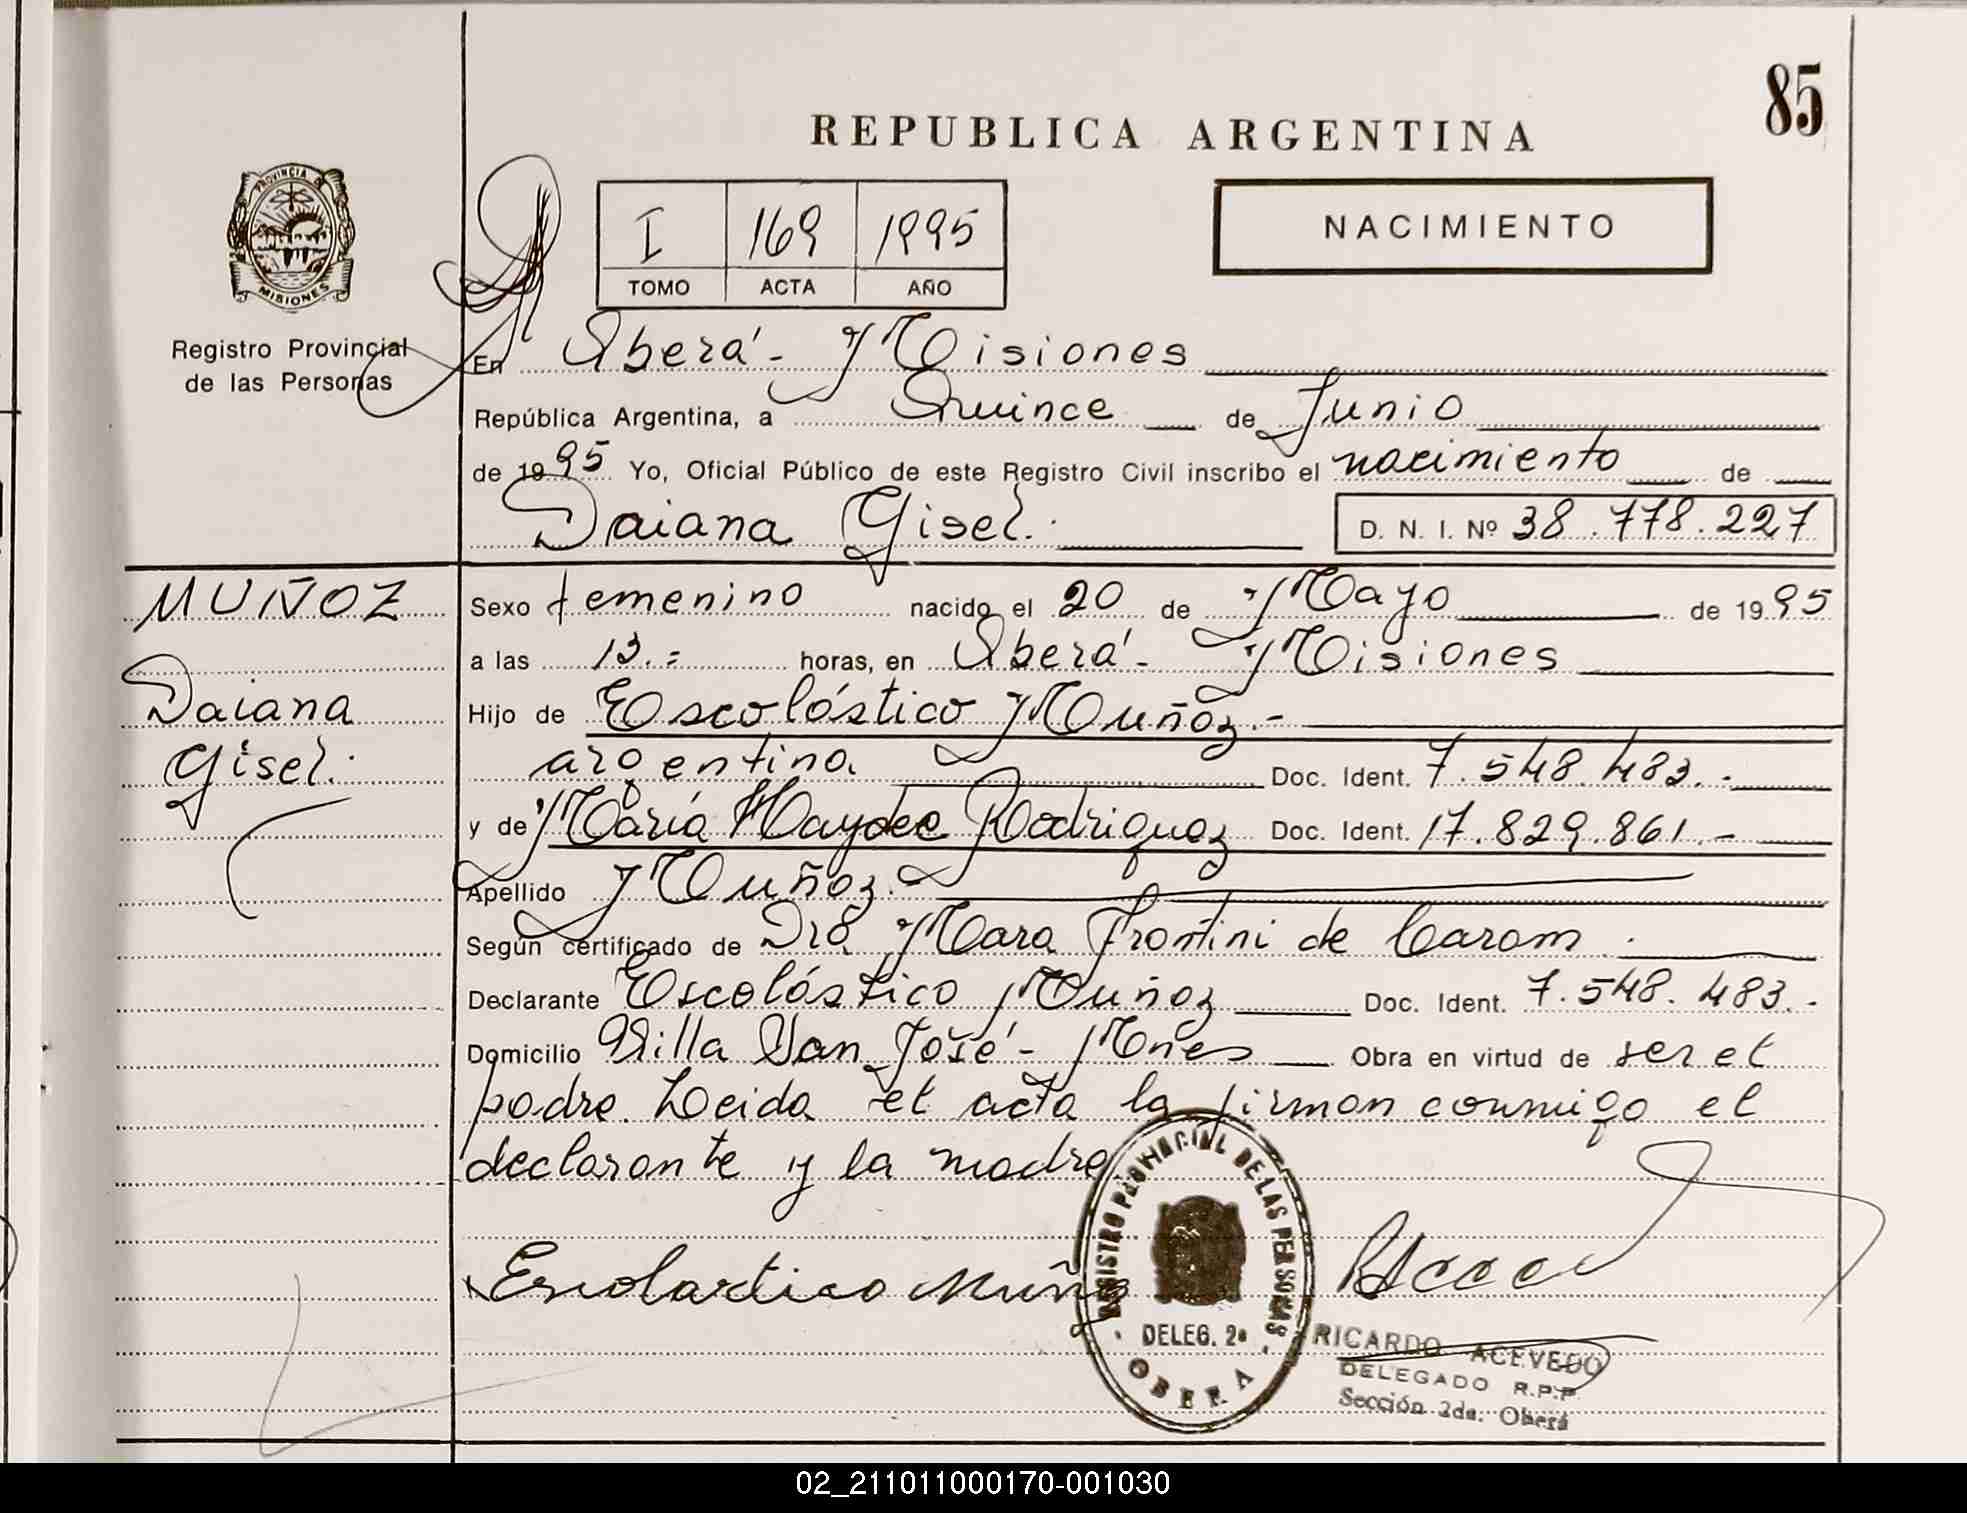 85
REPUBLICA ARGENTINA
PROVINCIA DE
MISIONES
Registro Provincial
de las Personas
I 169 1995
TOMO ACTA AÑO
NACIMIENTO
En Oberá - Misiones
República Argentina, a Quince de Junio
de 1995 Yo, Oficial Público de este Registro Civil inscribo el nacimiento de
Daiana Gisel.
D. N. I. Nº 38.778.227
MUÑOZ
Daiana
Gisel.
Sexo femenino nacido el 20 de Mayo de 1995
a las 13.= horas, en Oberá - Misiones
Hijo de Escolástico Muñoz.-
argentina Doc. Ident. 7.548.483.-
y de María Haydee Rodriguez Doc. Ident. 17.829.861.-
Apellido Muñoz.-
Según certificado de Dra Mara Frontini de Carom.
Declarante Escolástico Muñoz Doc. Ident. 7.548.483.-
Domicilio Villa San José - Mnes Obra en virtud de ser el
padre. Leida el acta la firman conmigo el
declarante y la madre
Escolartico Muñoz
REGISTRO PROVINCIAL DE LAS PERSONAS
DELEG. 2ª
OBERA
RICARDO ACEVEDO
DELEGADO R.P.P.
Sección 2da. Oberá
02_211011000170-001030